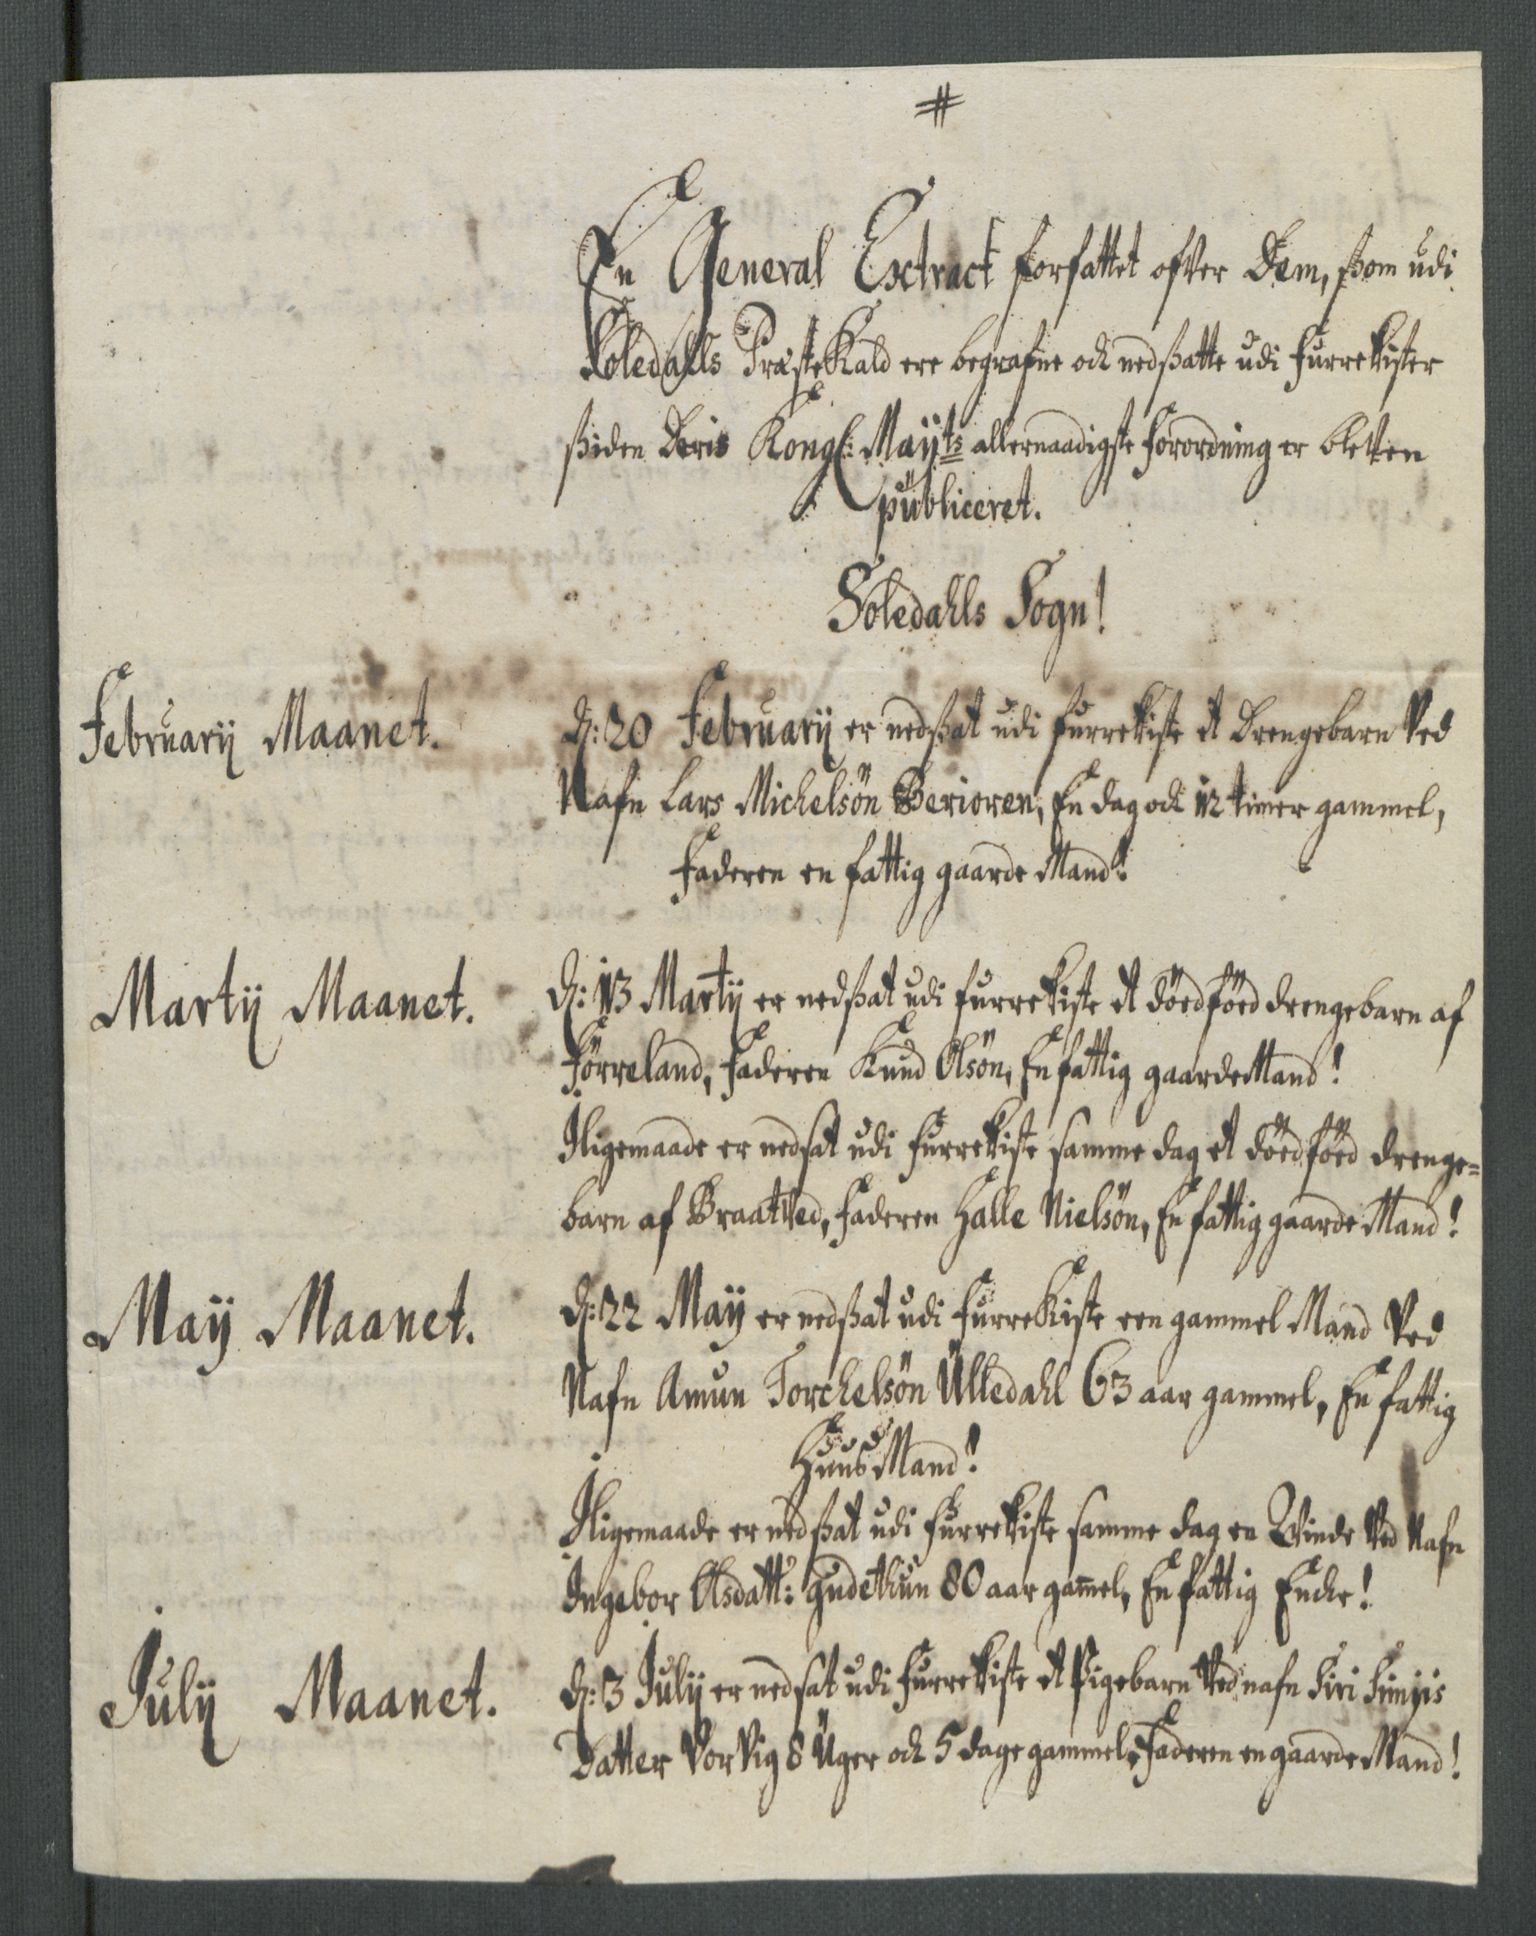 En General Extract forfattet ofver Dem, som udi
Soledahls PræsteKald ere begrafne och nedsatte udi furrekister
siden Deris Kongl: Mayts allernaadigste Forordning er bleven
publiceret.
Soledahls Sogn!
Februarij Maanet.
D: 20 Februarij er nedsat udi furrekiste et Drengebarn ved
Nafn Lars Michelsön Berioren, En dag och 12 timer gammel,
Faderen en fattig gaarde Mand!
Martij Maanet.
D: 13 Martij er nedsat udi furrekiste et döedföed drengebarn af
Förreland, Faderen Knud Olsön, En fattig gaardeMand!
Iligemaade er nedsat udi furrekiste samme dag et döedföed drenge=
barn af Braatved, Faderen Halle Nielsön, En fattig gaarde Mand!
Maij Maanet.
D: 22 Maij er nedsat udi furreKiste een gammel Mand ved
Nafn Amun Torchelsön Ülledahl 63 aar gammel, En fattig
HuusMand!
Iligemaade er nedsat udi furrekiste samme dag en Qvinde ved Nafn
Ingebor Olsdatt: Gudethun 80 aar gam̄el, En fattig Encke!
Julij Maanet.
D: 3 Julij er nedsat udi furrekiste et Pigebarn ved nafn Siri
Datter Vorvig 8 Üger och 5 dage gammel, Faderen en gaarde Mand!